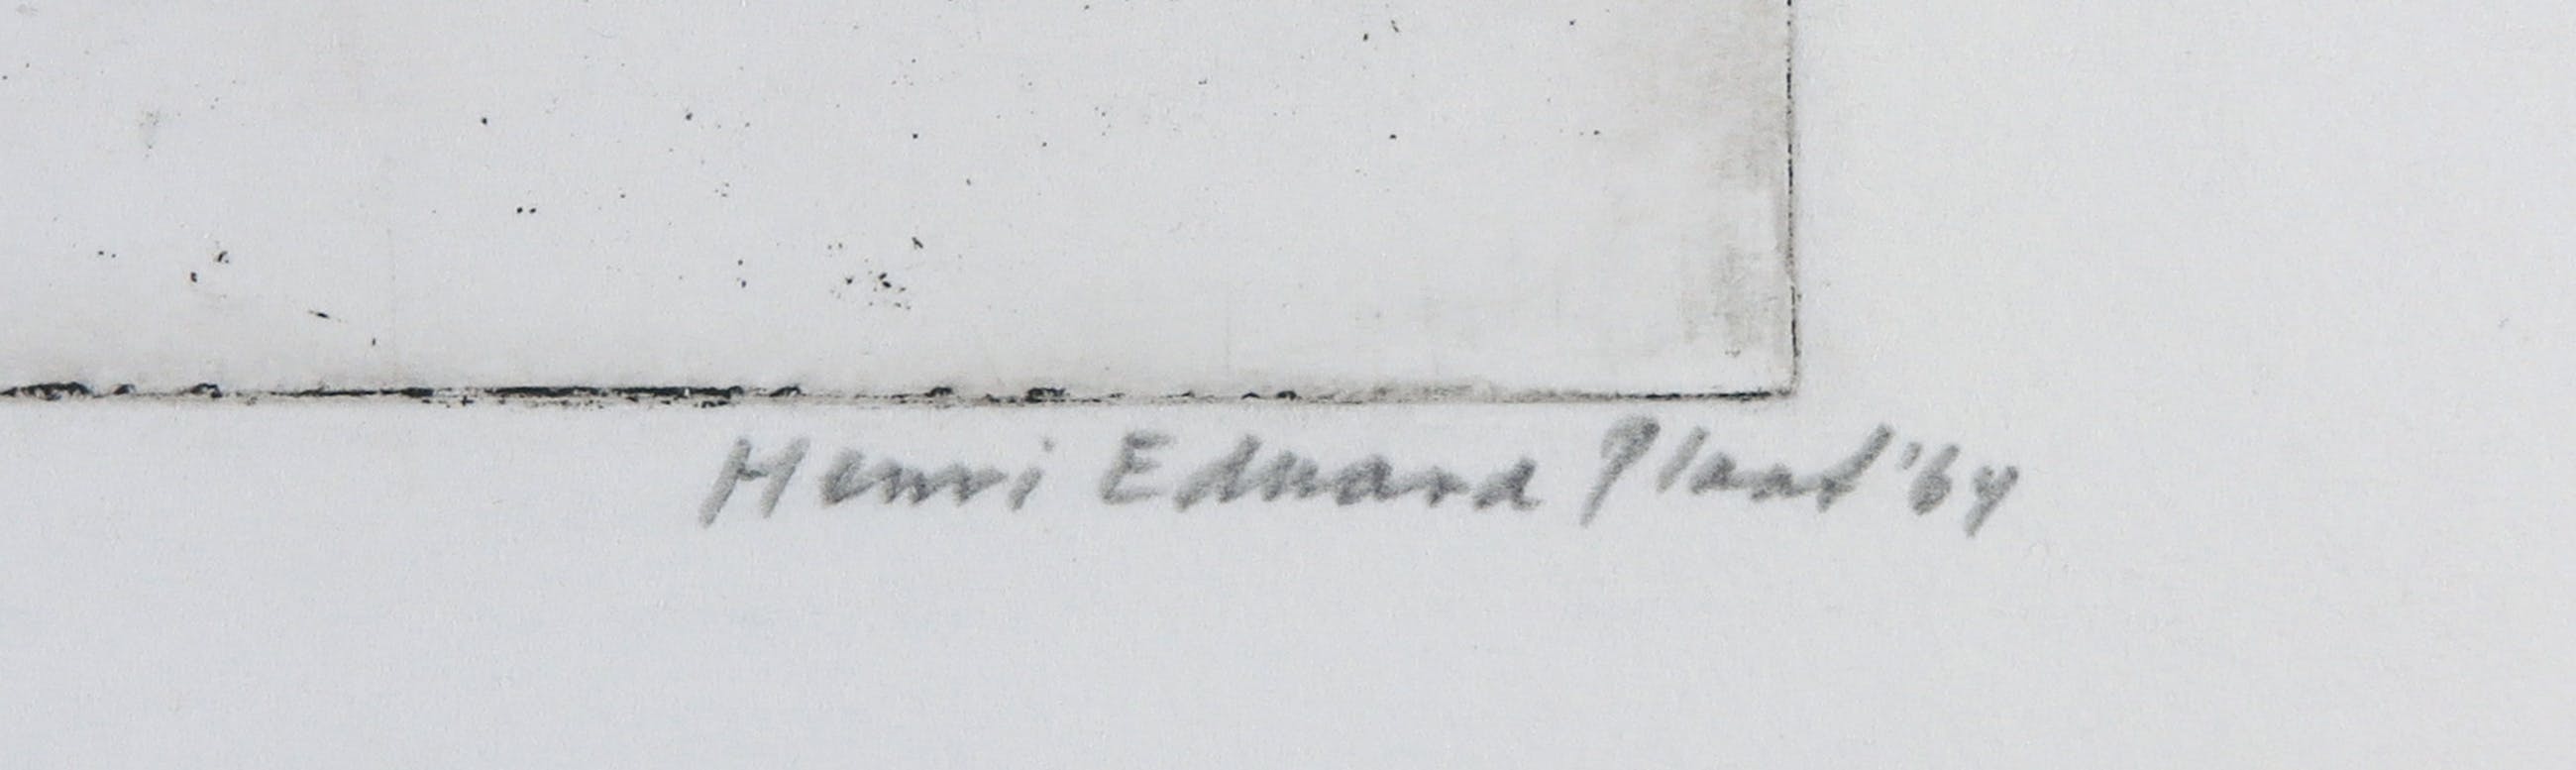 Henri Eduard Plaat '64